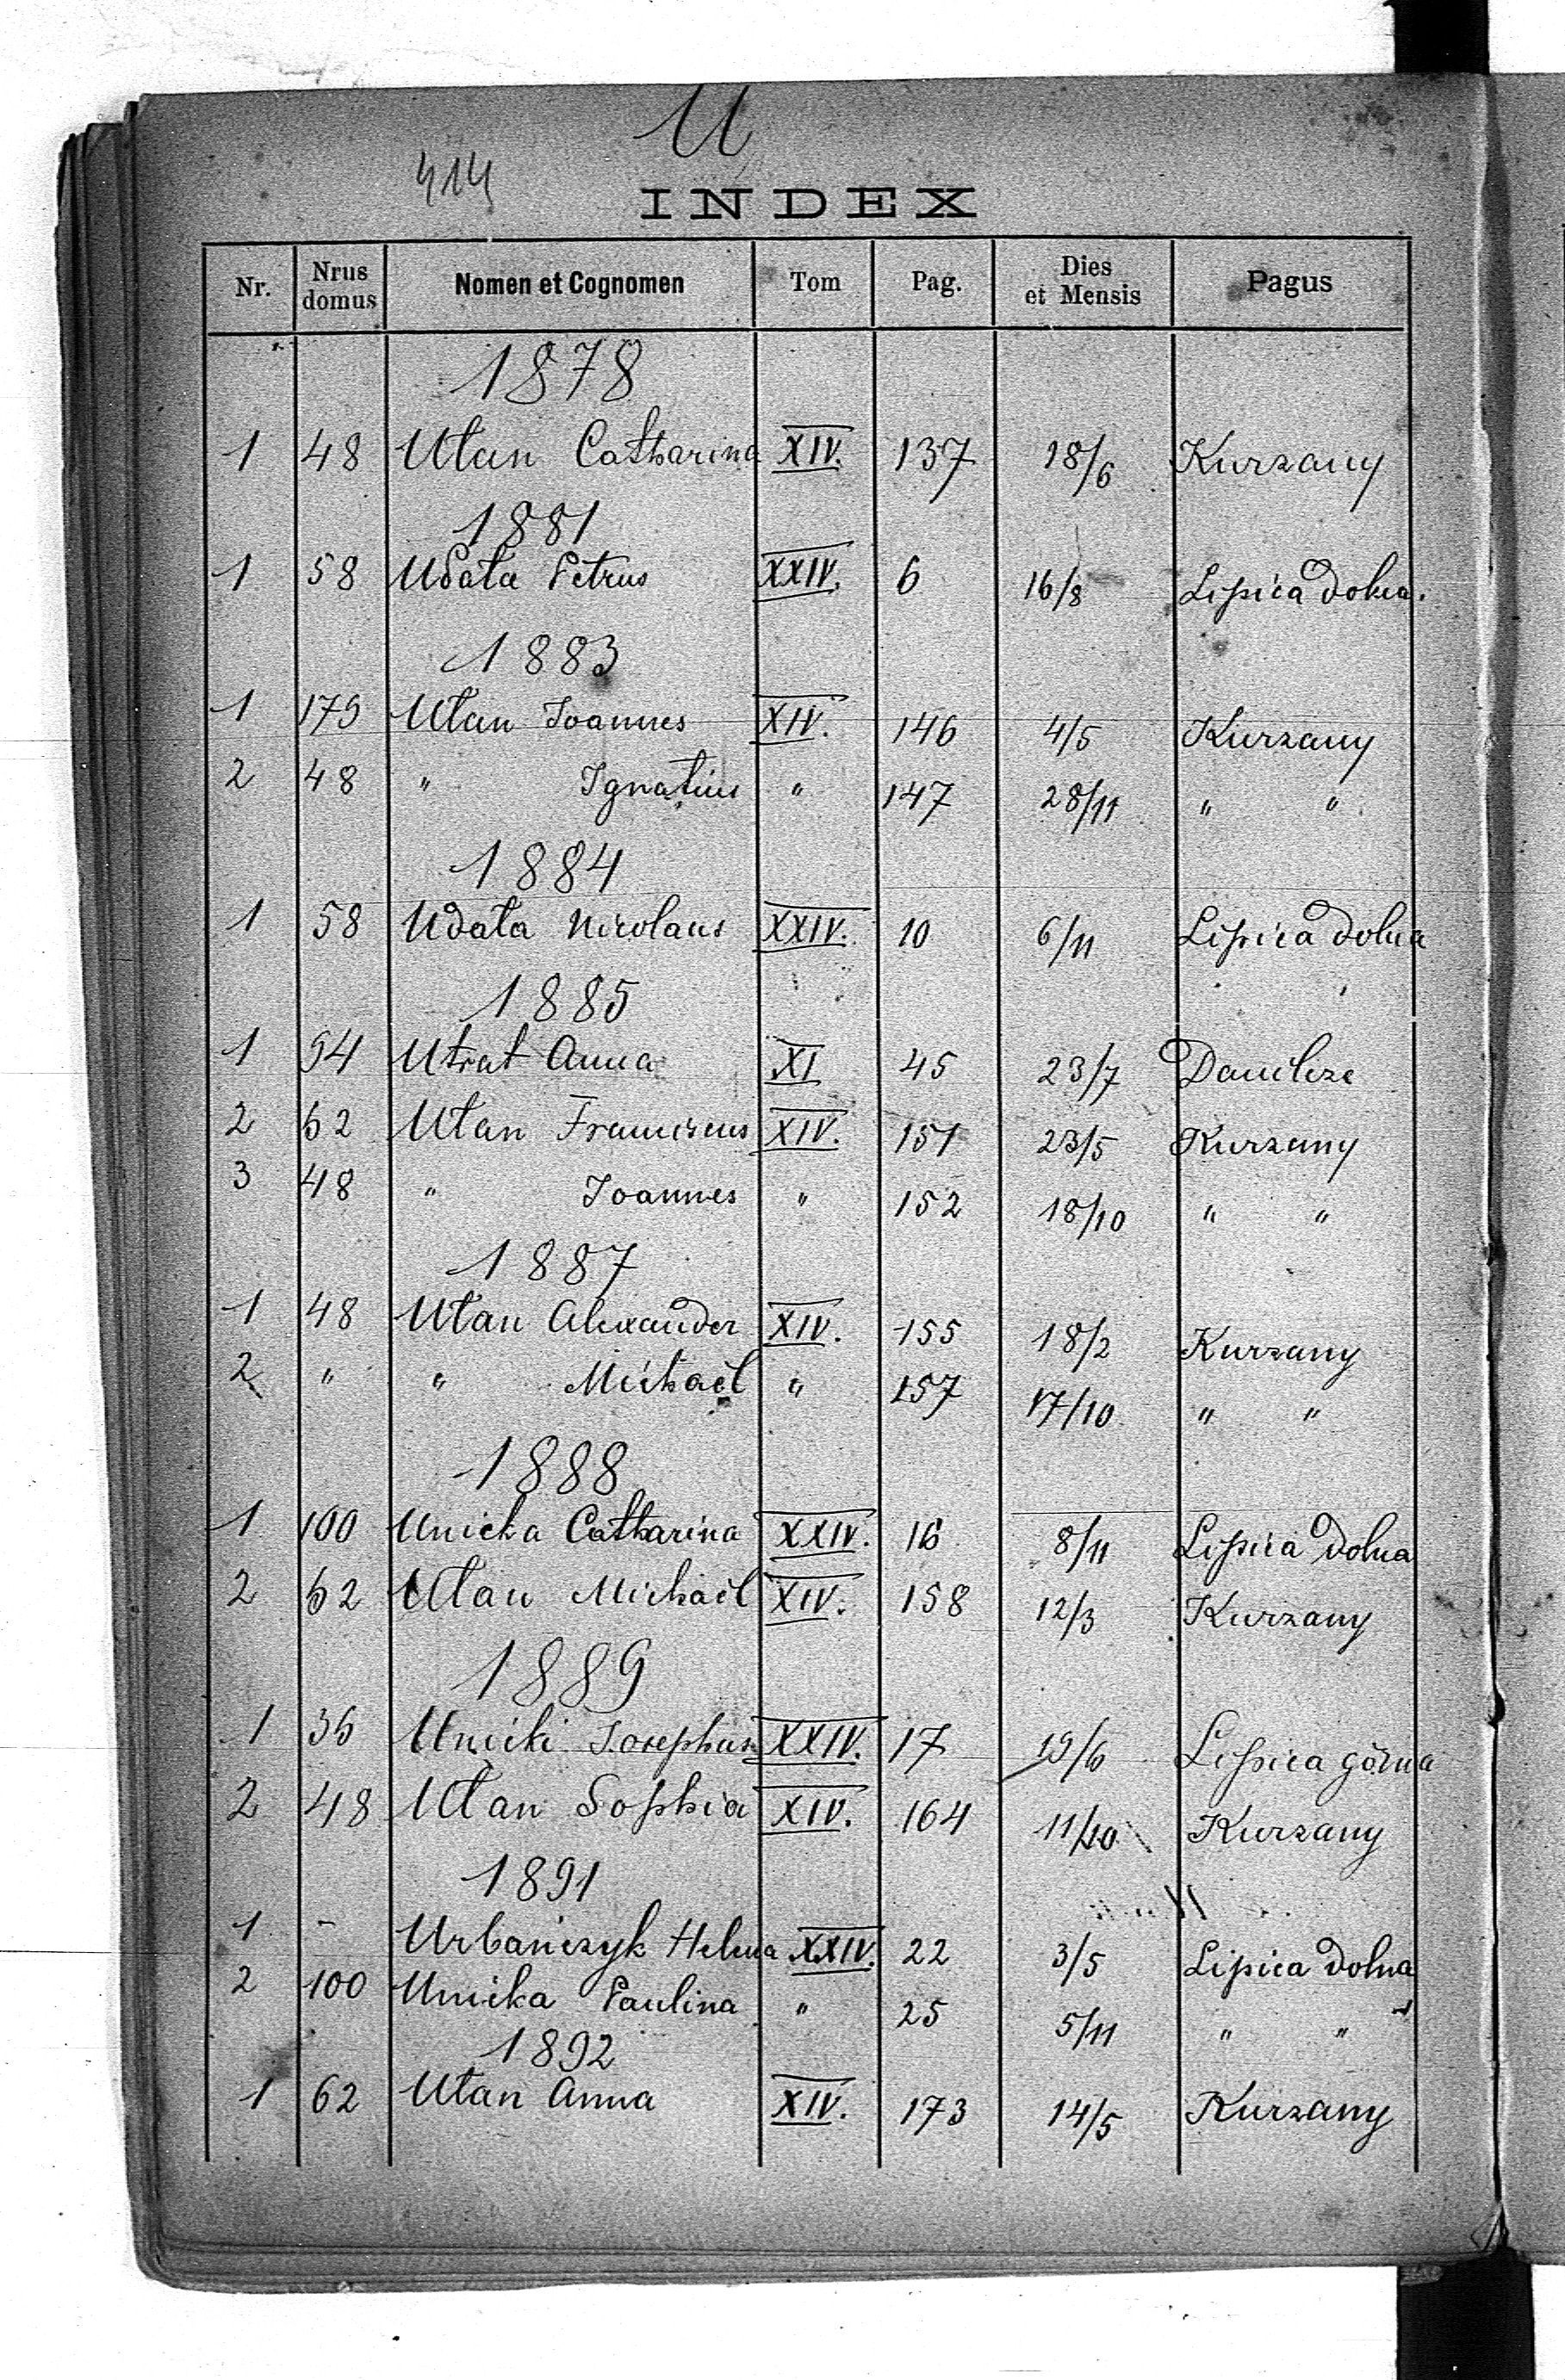 U
414
INDEX
Nr. Nrus domus Nomen et Cognomen Tom Pag. Dies et Mensis Pagus
1878
1 48 Utan Catharina XIV. 137 18/6 Kurzany
1881
1 58 Udata Petrus XXIV. 6 16/8 Lipica dolna.
1883
1 179 Utan Joannes XIV. 146 4/5 Kurzany
2 48 " Ignatius " 147 28/11 " "
1884
1 58 Udata Nicolaus XXIV. 10 6/11 Lipica dolna
1885
1 94 Utrat Anna XI 45 23/7 Danilcze
2 62 Utan Franciscus XIV. 151 23/5 Kurzany
3 48 " Joannes " 152 18/10 " "
1887
1 48 Utan Alexander XIV. 155 18/2 Kurzany
2 " " Michaël " 157 17/10 " "
1888
1 100 Unicka Catharina XXIV. 16 8/11 Lipica dolna
2 62 Utan Michaël XIV. 158 12/3 Kurzany
1889
1 36 Unicki Josephus XXIV. 17 19/6 Lipica górna
2 48 Utan Sophia XIV. 164 11/10 Kurzany
1891
1 - Urbańczyk Helena XXIV. 22 3/5 Lipica dolna
2 100 Unicka Paulina " 25 5/11 " "
1892
1 62 Utan Anna XIV. 173 14/5 Kurzany